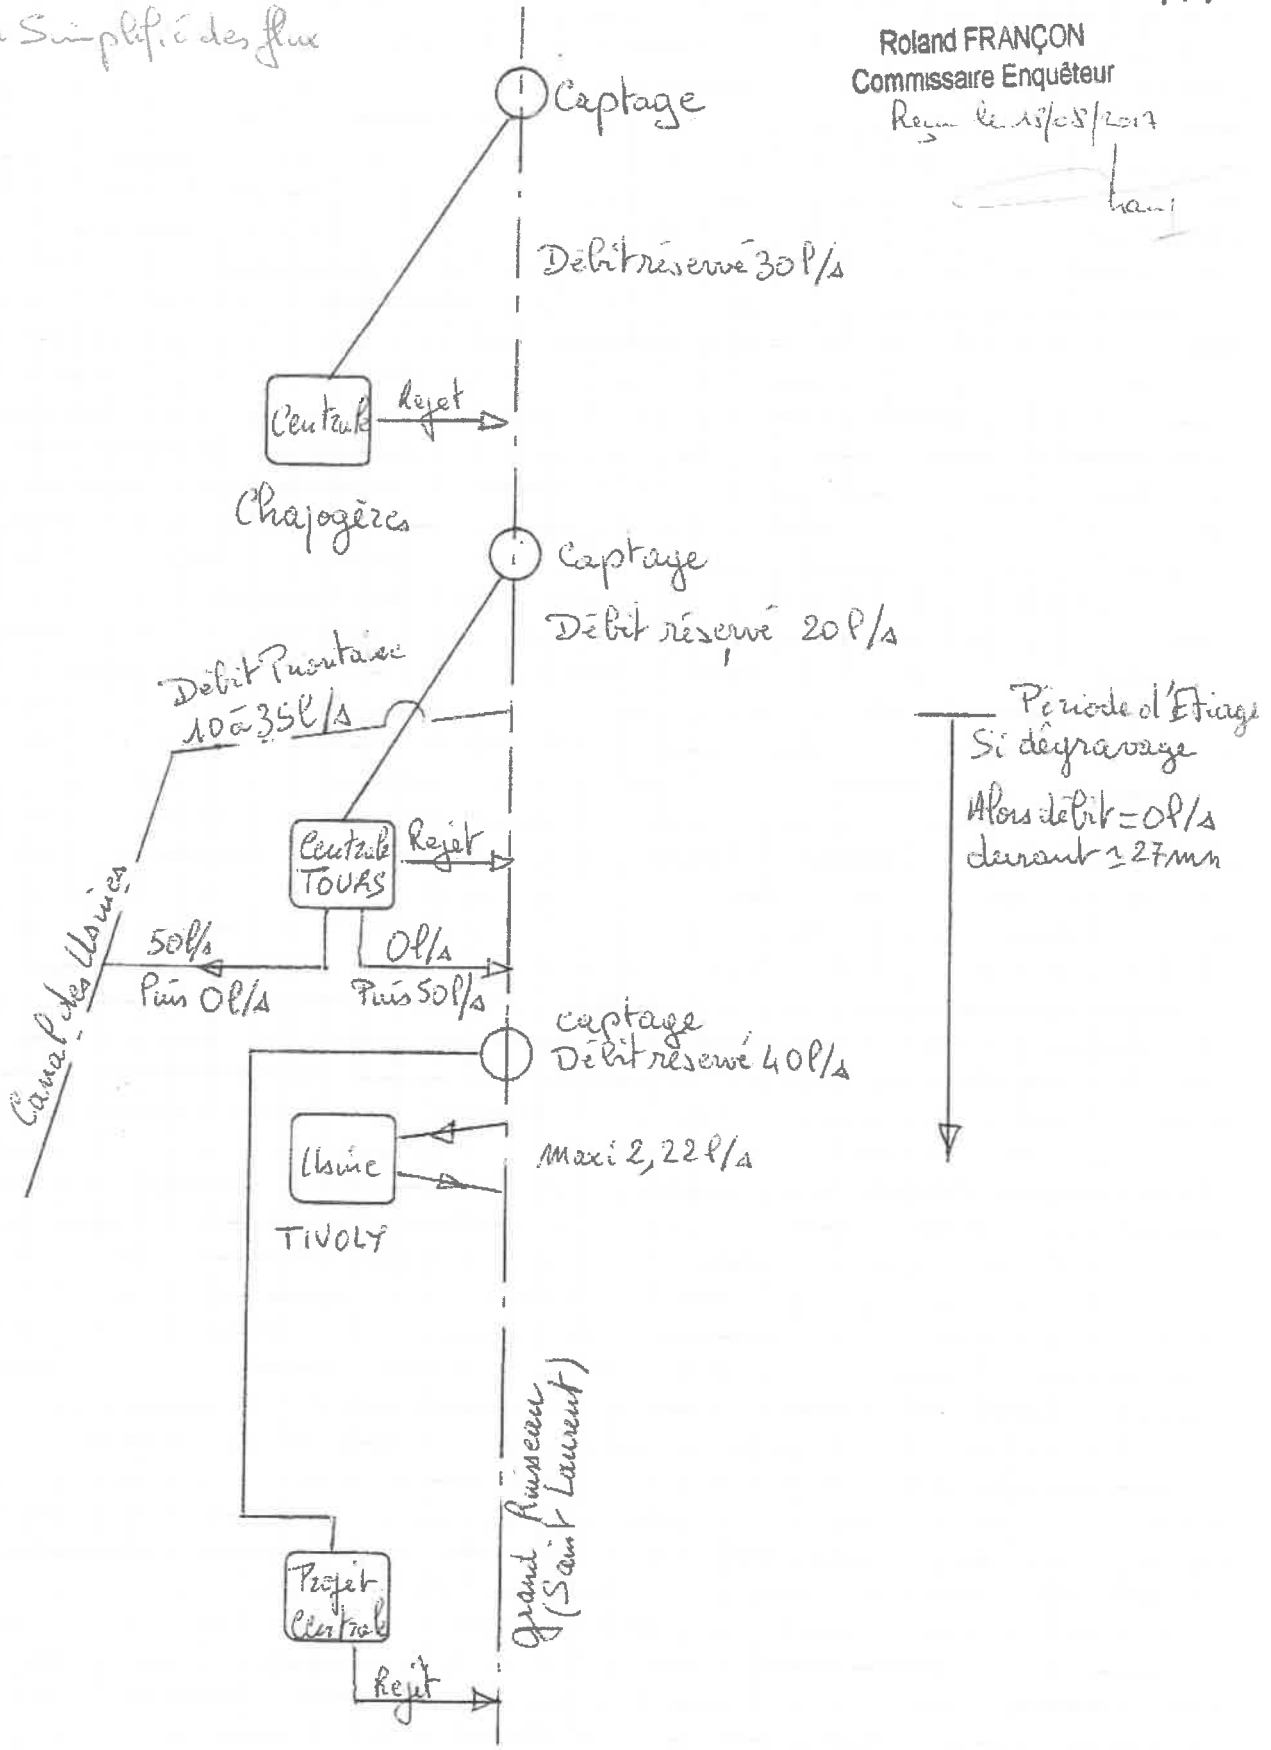 Simplifié des flux
Roland FRANÇON
Commissaire Enquêteur
Reçu le 18/05/2017
Captage
Débit réservé 30 l/s
Centrale
Rejet
Chajogères
Captage
Débit réservé 20 l/s
Débit Prioritaire
10 à 35 l/s
Période d'Etiage
Si dégravage
Alors débit = 0 l/s
durant ≃ 27 mn
Centrale
TOURS
Rejet
50 l/s
Puis 0 l/s
0 l/s
Puis 50 l/s
Canal des Usines
captage
Débit réservé 40 l/s
Usine
Maxi 2,22 l/s
TIVOLY
Grand Ruisseau
(Saint Laurent)
Projet
Centrale
Rejet